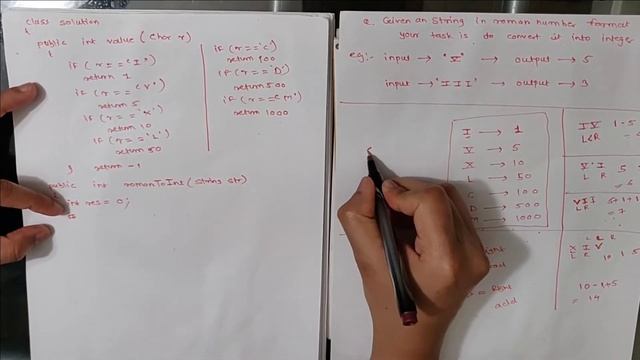 class solution
{
public int value (char r)
{
if (r == 'I')
return 1
if (r == 'V')
return 5
if (r == 'X')
return 10
if (r == 'L')
return 50
if (r == 'C')
return 100
if (r == 'D')
return 500
if (r == 'M')
return 1000
} return -1
public int romanToInt (string str)
int res = 0;
Q. Given an string in roman number format
your task is do convert it into integer
eg:- input → 'V' → output → 5
input → 'III' → output → 3
I → 1
V → 5
X → 10
L → 50
C → 100
D → 500
→ 1000
IV 1-5
L<R
V I 5
L R
VII 5+1+1
L R = 7
L R R
X I V
L R 10 1 5
10-1+5
= 14
= Right
add